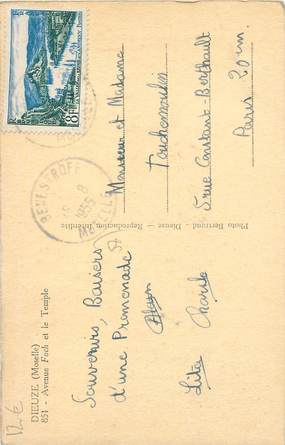 DIEUZE (Moselle)
851 - Avenue Foch et le Temple
Souvenirs, Baisers
d'une Promenade
Lita Charlo
Photo Bertrand - Dieuze - Reproduction Interdite
8F
BENESTROFF
8
1955
MOSELLE
Monsieur et Madame
Touchemoulin
5 rue Constant-Berthault
Paris 20em.
12 €